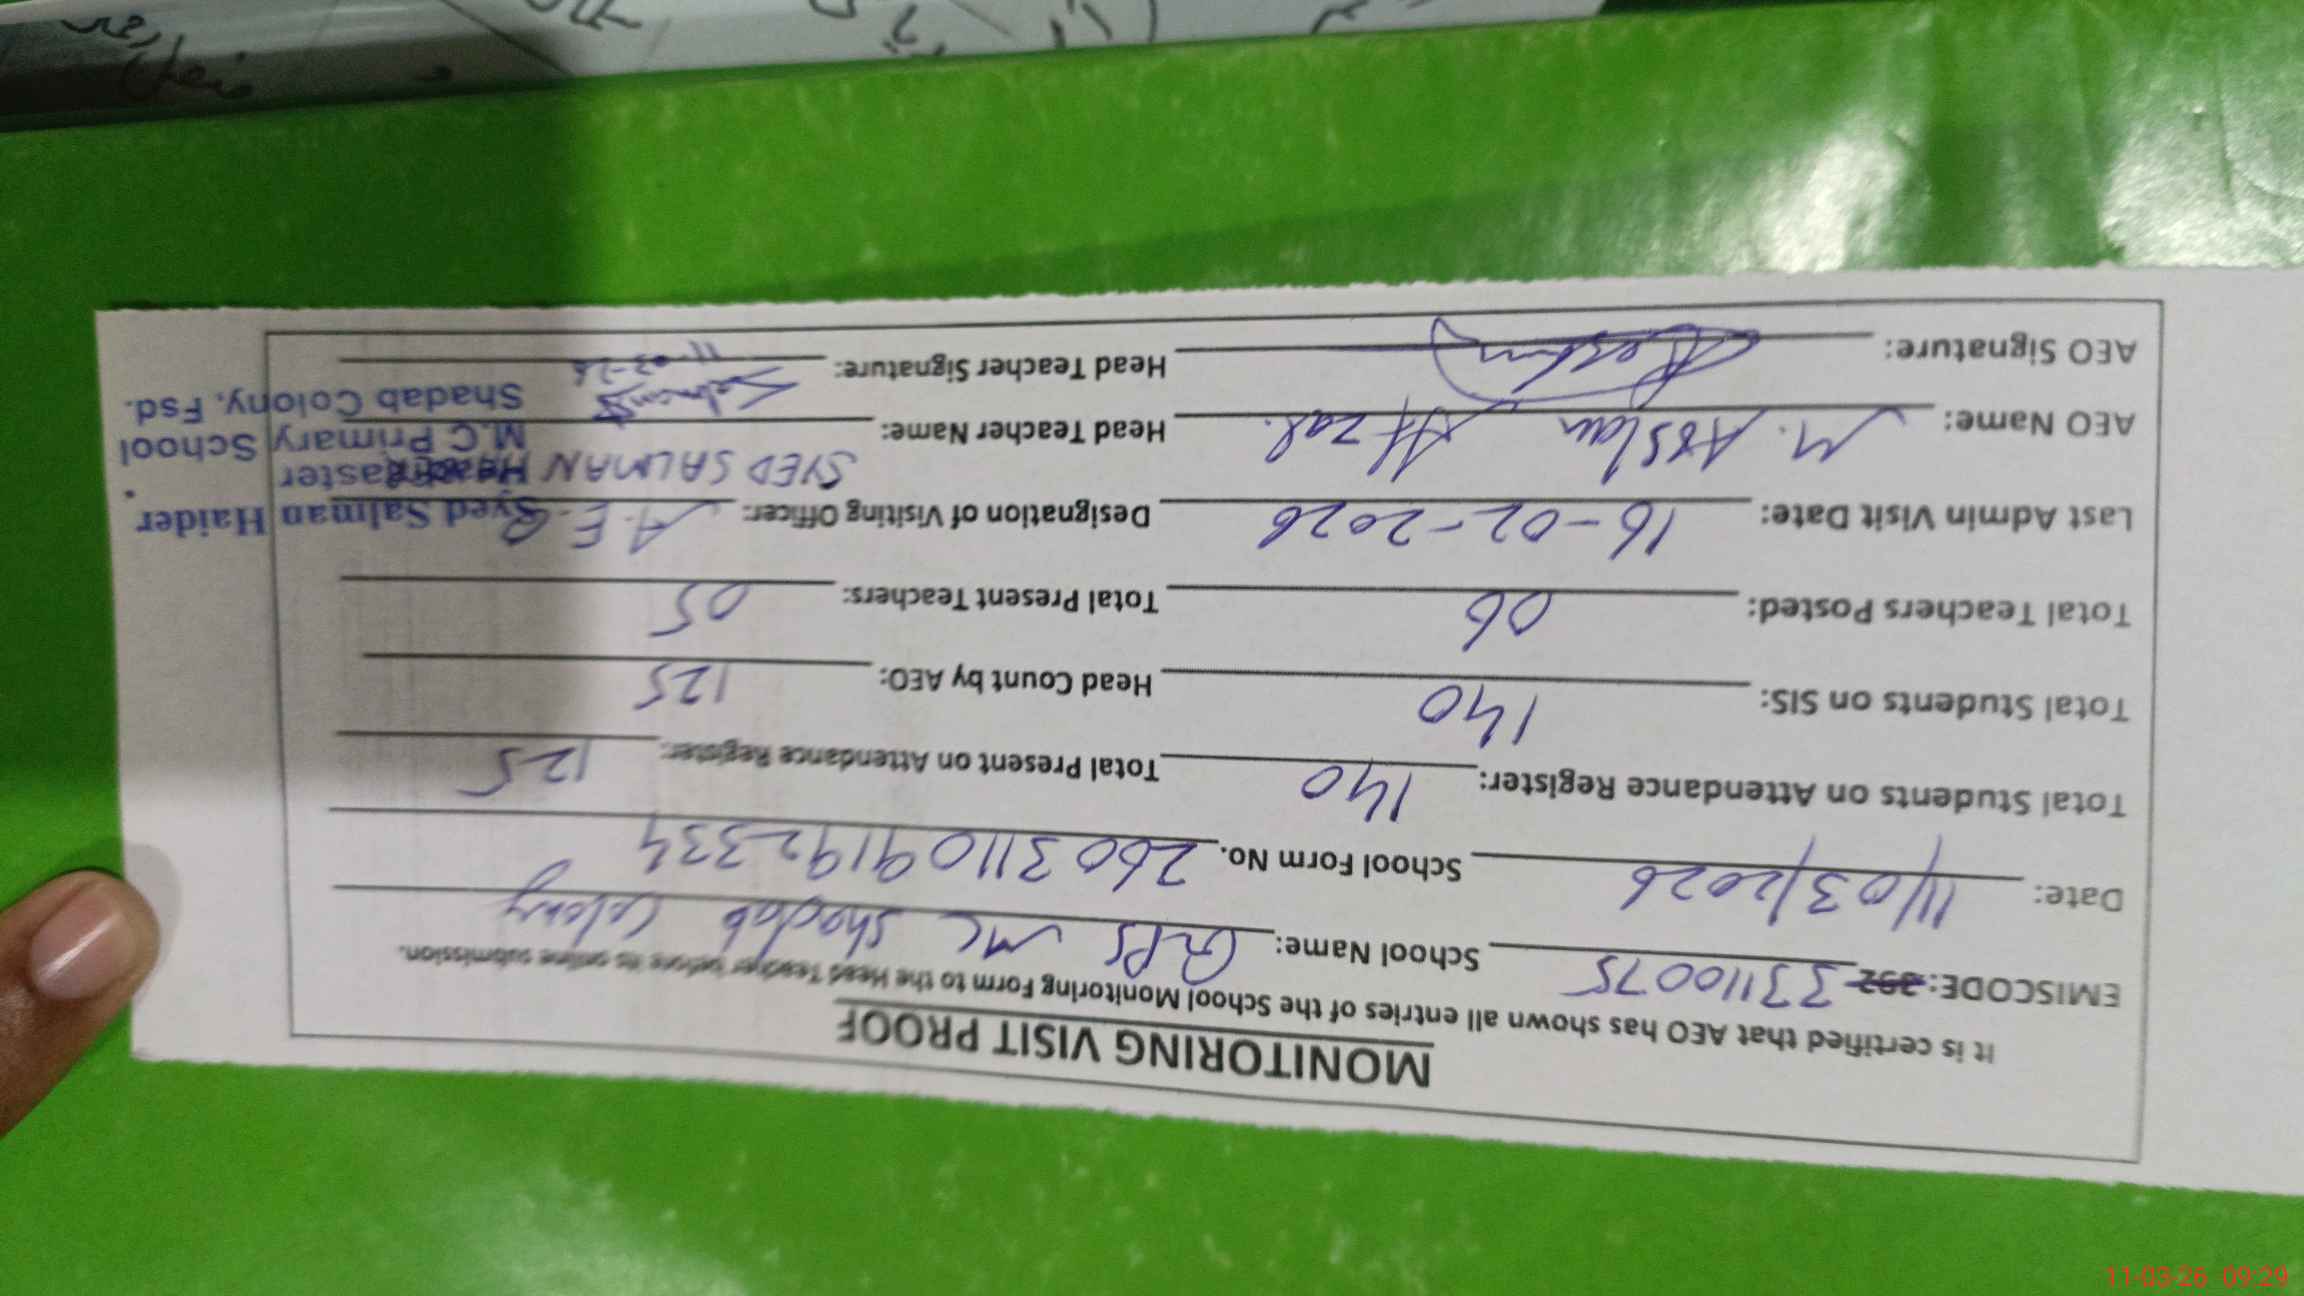 MONITORING VISIT PROOF
It is certified that AEO has shown all entries of the School Monitoring Form to the Head Teacher before its online submission.
EMISCODE: 392 33110075 School Name: GPS MC Shadab Colony
Date: 11/03/2026 School Form No. 26031109192334
Total Students on Attendance Register: 140 Total Present on Attendance Register: 125
Total Students on SIS: 140 Head Count by AEO: 125
Total Teachers Posted: 06 Total Present Teachers: 05
Last Admin Visit Date: 16-02-2026 Designation of Visiting Officer: A.E.O
AEO Name: M. Arslan Afzal. Head Teacher Name: SYED SALMAN
AEO Signature: Head Teacher Signature: Salman
11-03-26
Syed Salman Haider
Headmaster
M.C Primary School
Shadab Colony, Fsd.
11-03-26 09:29